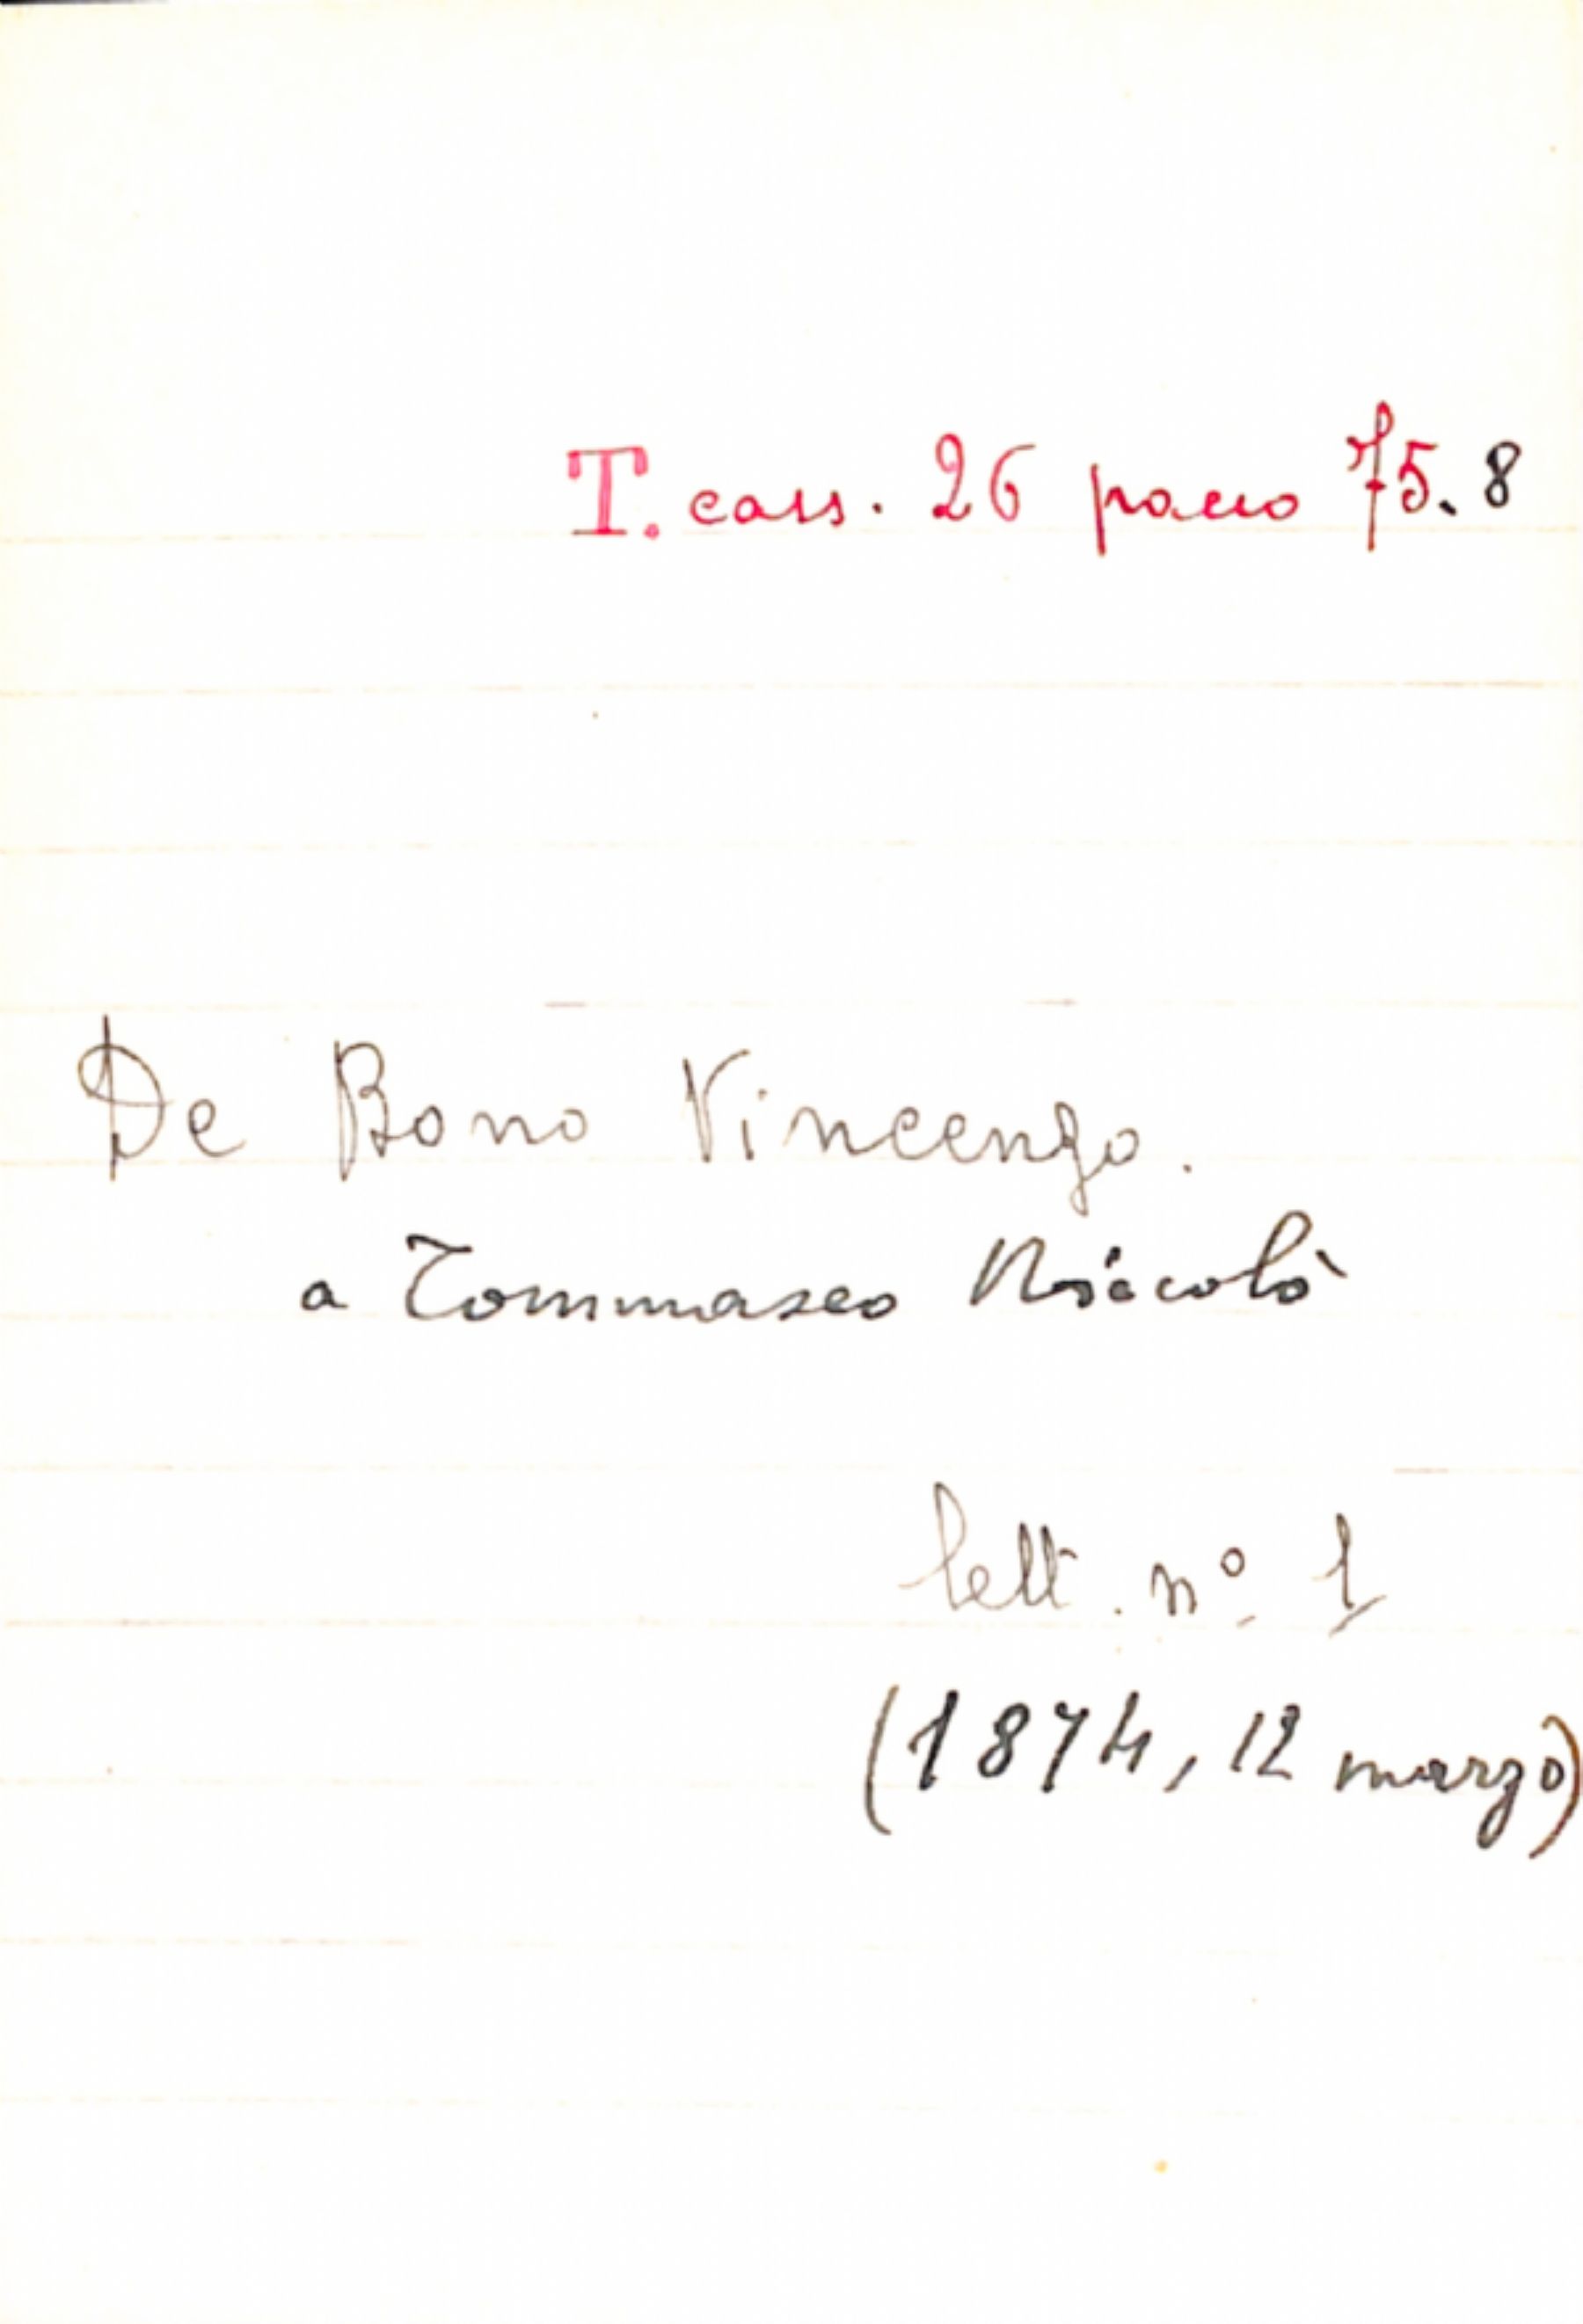 T. cass. 26 pacco 75.8
De Bono Vincenzo.
a Tommaseo Niccolò
lett. nº 1
(1874, 12 marzo)